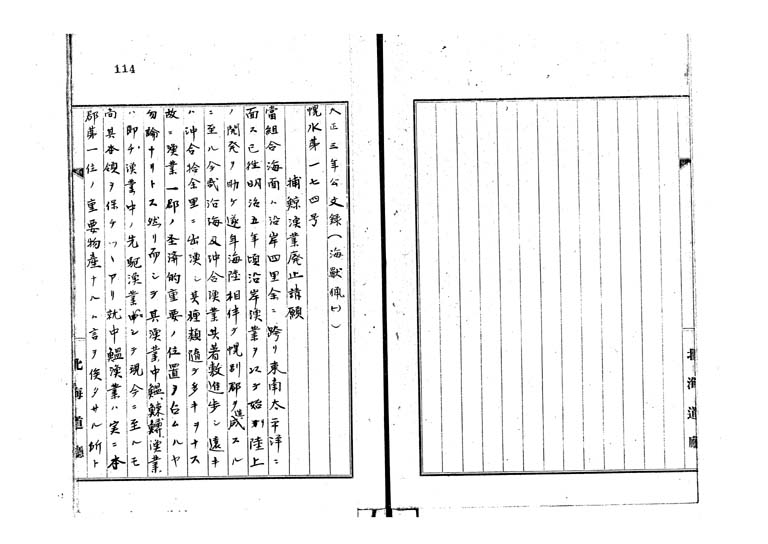 114
大正三年公文録(海獣猟ニ)
幌水第一七四号
捕鯨漁業廃止請願
當組合海面ハ沿岸四里余ニ跨リ東南太平洋ニ
面ス已往明治五年頃沿岸漁業ヲ以テ始メ陸上
ノ開発ヲ助ケ逐年海陸相伴テ幌別郡ヲ成スル
ニ至ル今哉沿海及沖合漁業其著敷進歩シ遠キ
ハ沖合拾余里ニ出漁シ其種類随テ多キヲナス
故ニ漁業一郡ノ圣済的重要ノ位置ヲ占ムルヤ
勿論ナリトス然リ而シテ其漁業中鰮鯨鱶漁業
ハ即チ漁業中ノ先駆漁業ニシテ現今ニ至ルモ
尚其本領ヲ保チツヽアリ就中鰮漁業ハ実ニ本
郡第一位ノ重要物産ナルハ言ヲ俟タサル所ト
北海道廳
北海道廳